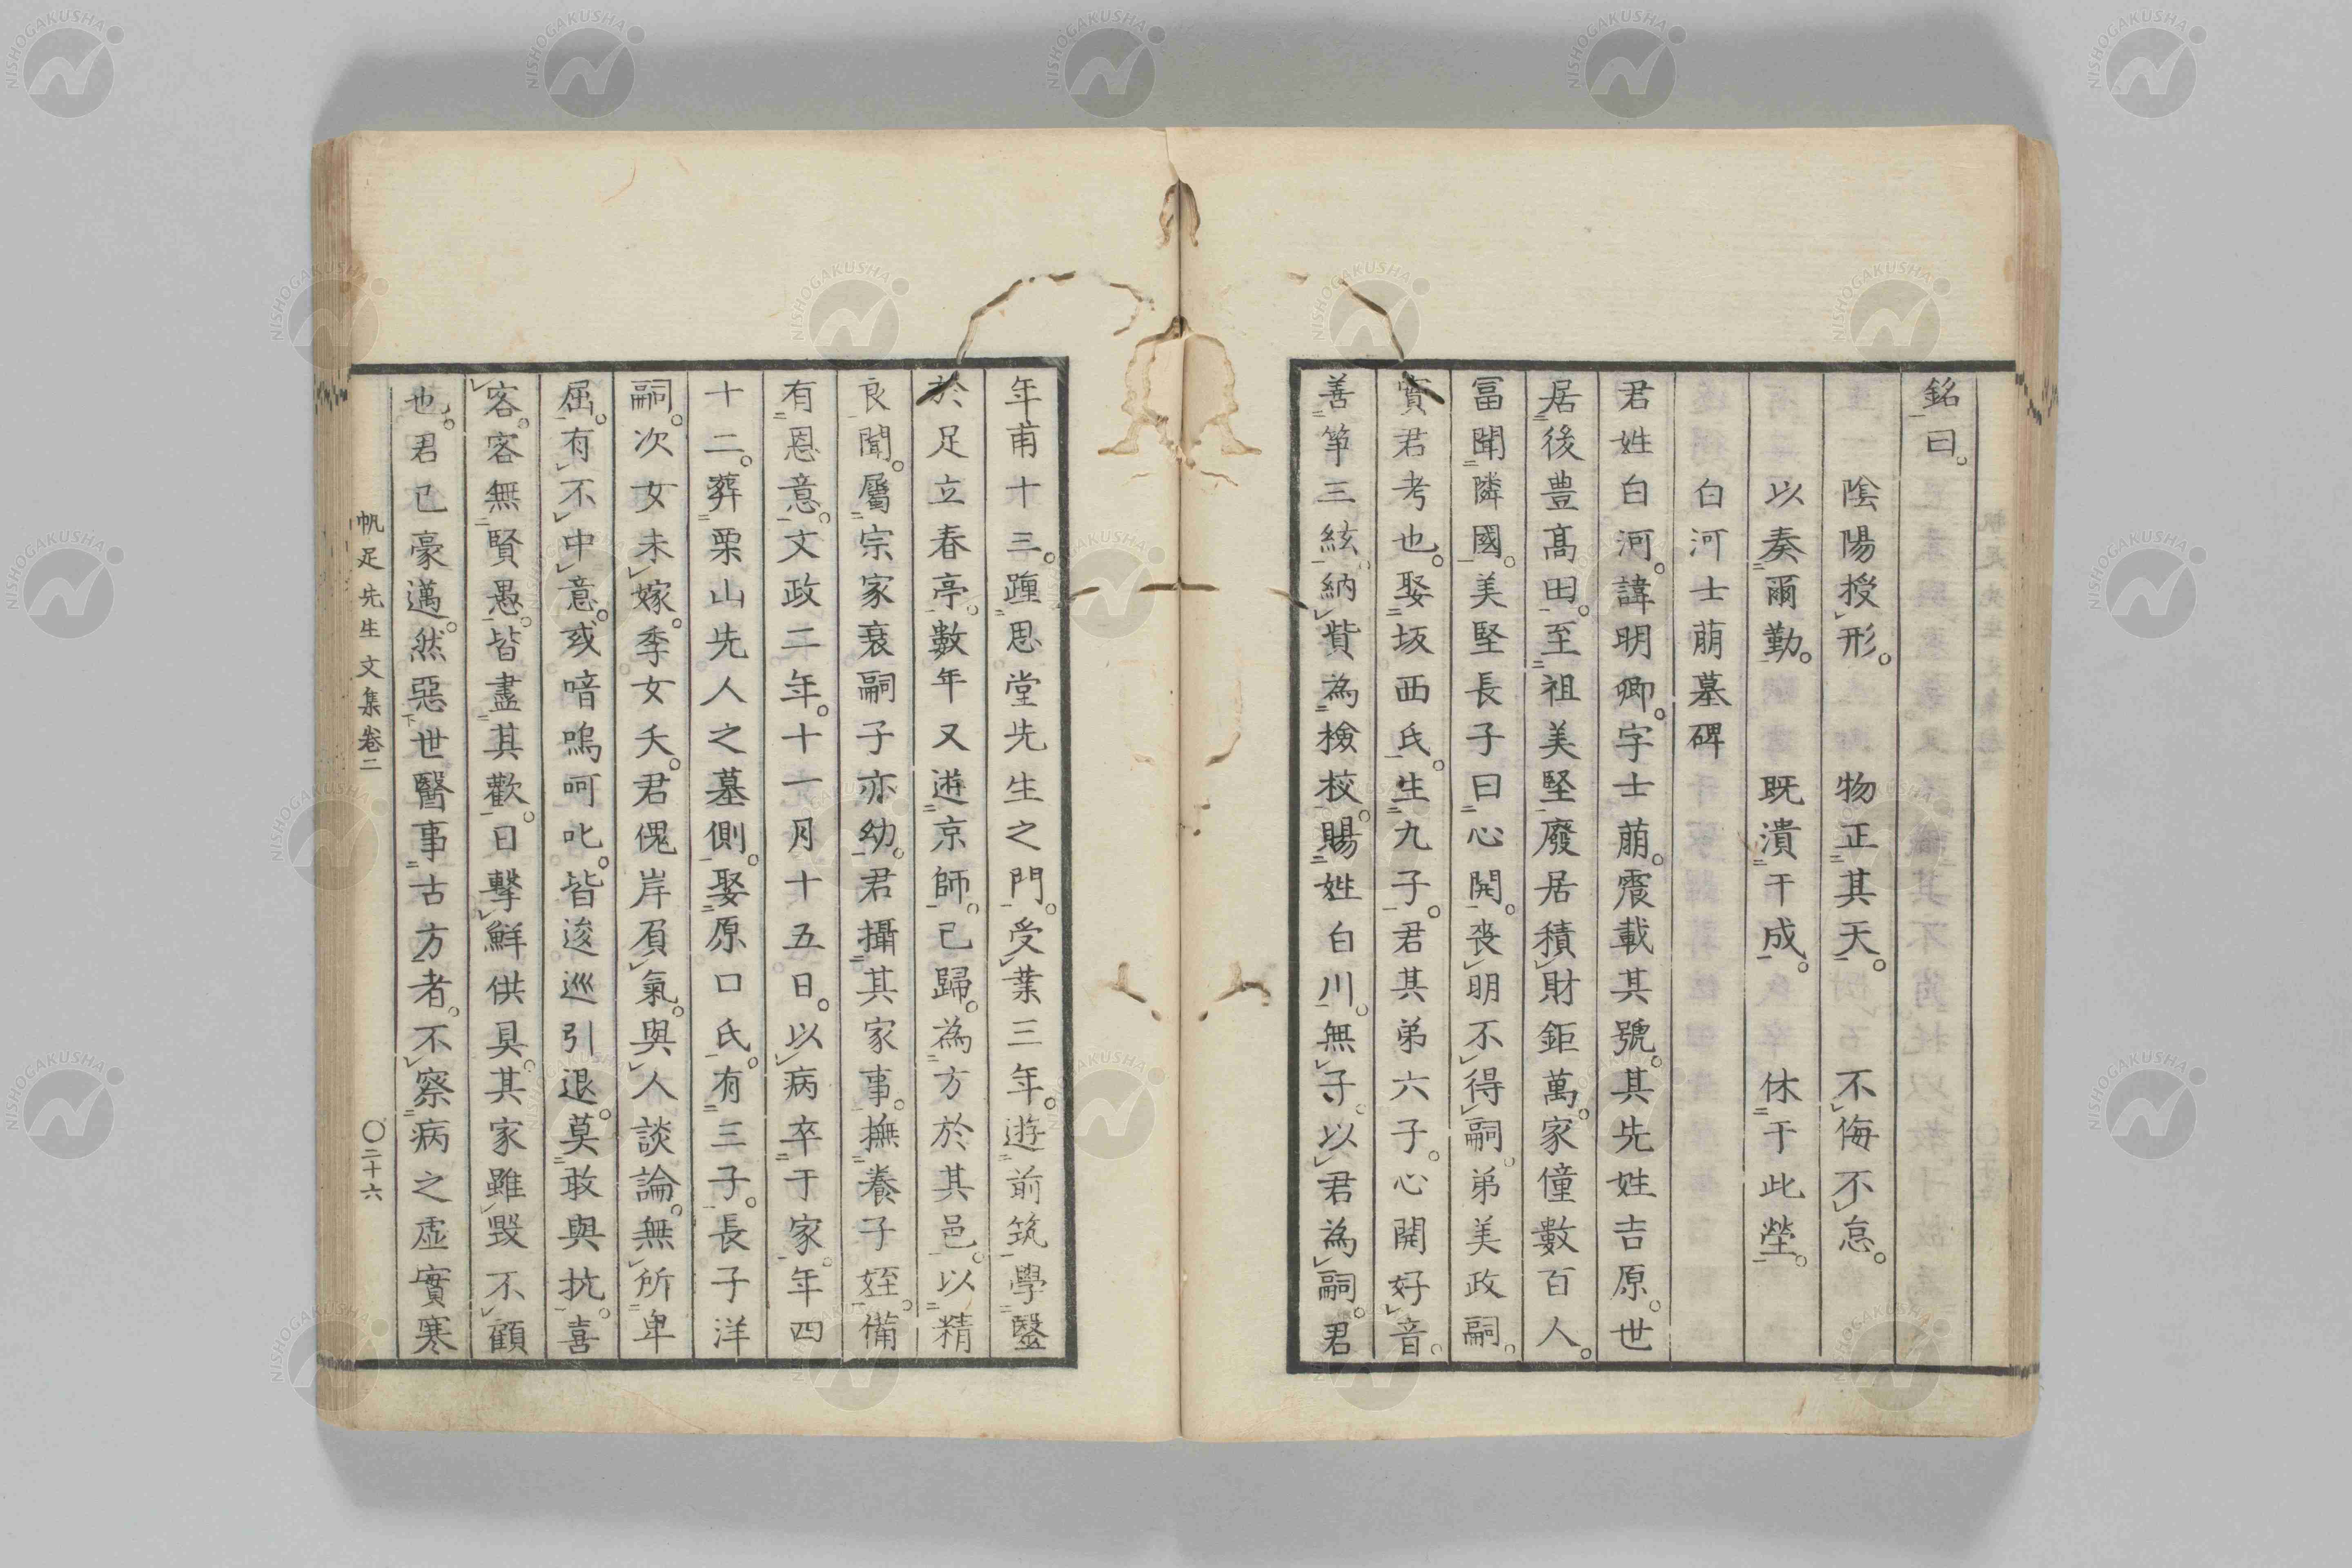 銘曰。
陰陽授形。 物正其天。 不侮不怠。
以奏爾勤。 既潰于成。 休于此塋。
白河士萠墓碑
君姓白河。諱明卿。字士萠。震載其號。其先姓吉原。世
居後豊髙田。至祖美堅廢居積財鉅萬。家僮數百人。
冨聞隣國。美堅長子曰心開。喪明不得嗣。弟美政嗣。
實君考也。娶坂西氏。生九子。君其弟六子。心開好音。
善箏三絃納貲為檢校。賜姓白川。無子。以君為嗣。君
年甫十三。踵思堂先生之門。受業三年。遊前筑學醫
於足立春亭。數年又遊京師。已歸。為方於其邑。以精
良聞。屬宗家衰嗣子亦幼。君攝其家事。撫養子姪。備
有恩意。文政二年。十一月十五日。以病卒于家。年四
十二。葬栗山先人之墓側。娶原口氏。有三子。長子洋
嗣。次女未嫁。季女夭。君傀岸負氣。與人談論。無所卑
屈。有不中意。或喑嗚呵叱。皆逡巡引退。莫敢與抗。喜
客。客無賢愚。皆盡其歡。日擊鮮供具。其家雖毀不顧
也。君已豪邁。然惡世醫事古方者。不察病之虛實寒
帆足先生文集卷二 〇二十六
NISHOGAKUSHA